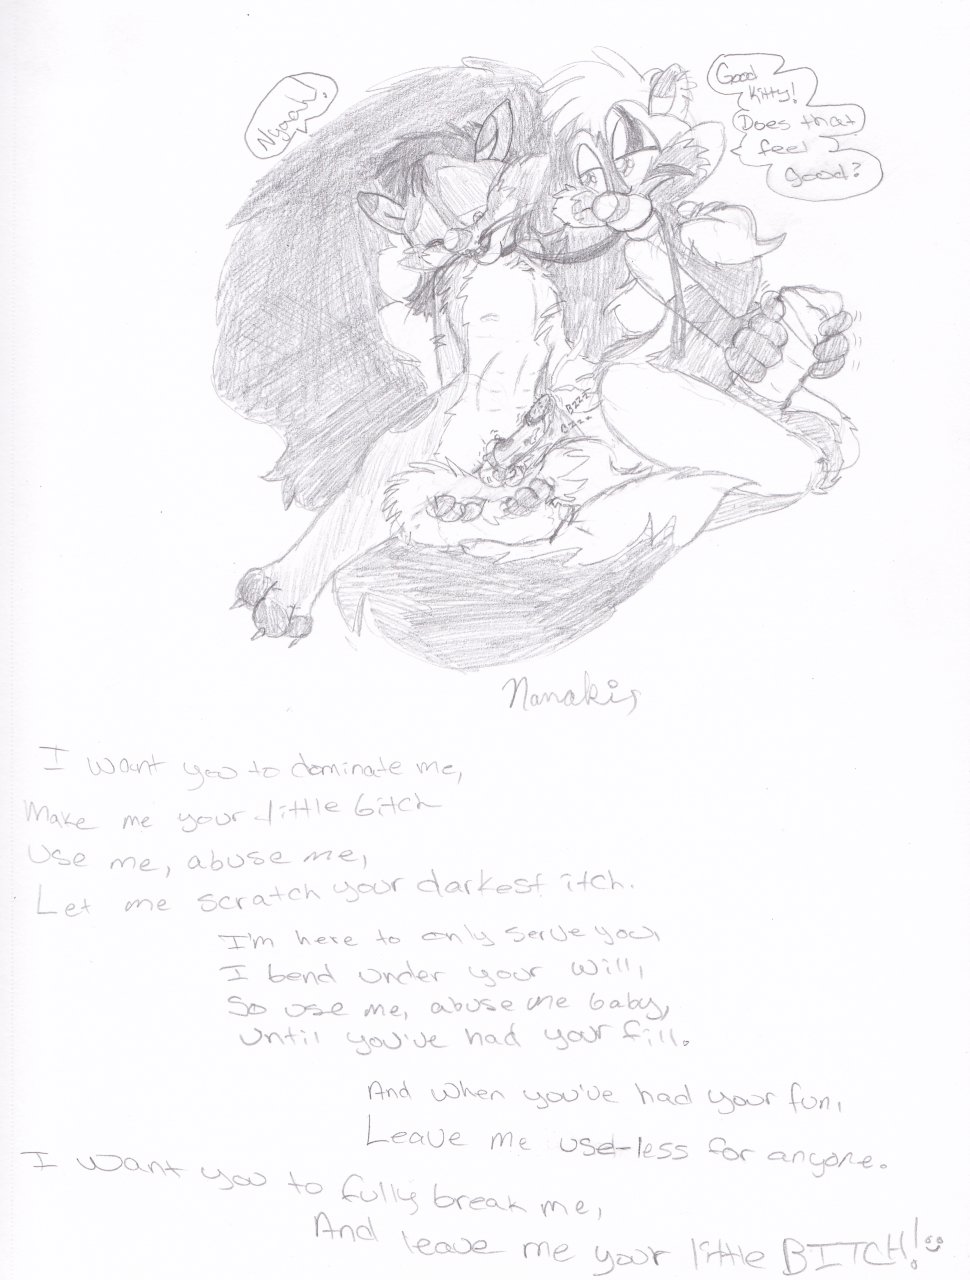 Nyaah!
Good
Kitty!
Does that
feel
good?
BZZT
Bzzz
Nanakis
I want you to dominate me,
Make me your little bitch
Use me, abuse me,
Let me scratch your darkest itch.
I'm here to only serve you,
I bend under your will,
So use me, abuse me baby,
Until you've had your fill.
And when you've had your fun,
Leave me use-less for anyone.
I want you to fully break me,
And leave me your little BITCH!